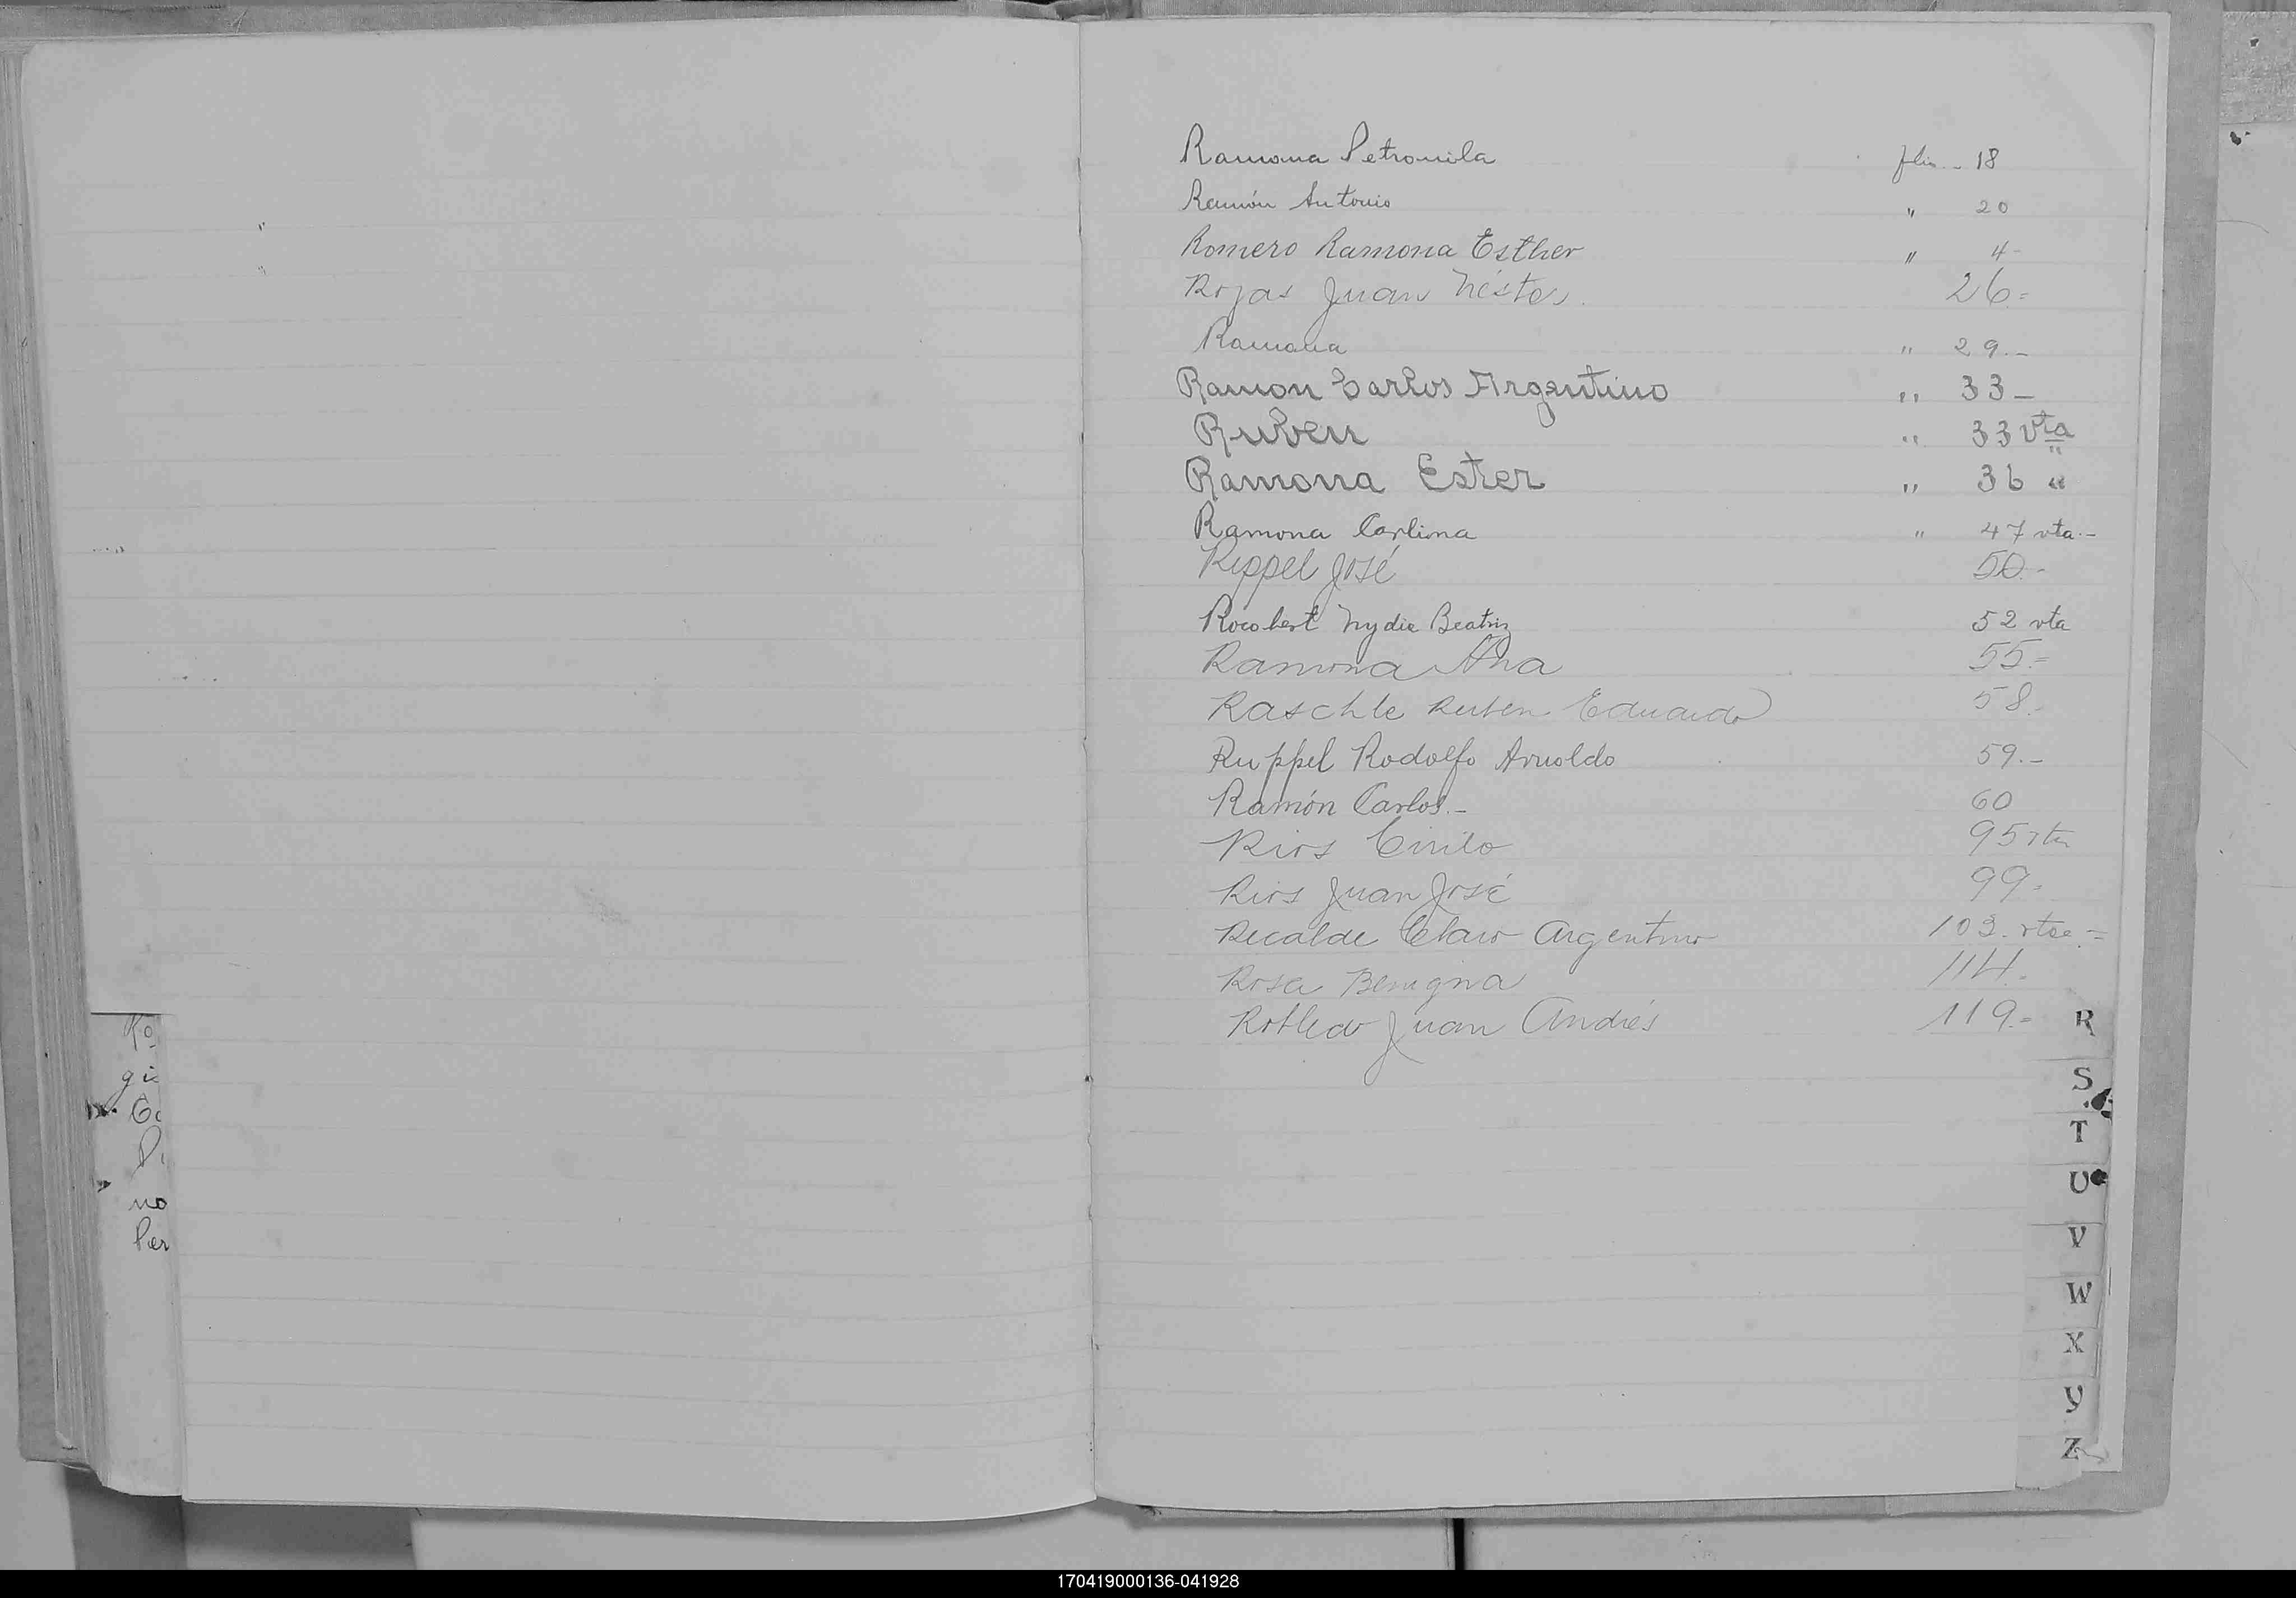 Ramona Petronila folio 18
Ramón Antonio " 20
Romero Ramona Esther " 4-
Rojas Juan Néstor 26=
Ramona " 29.-
Ramon Carlos Argentino " 33-
Ruben " 33 vta
Ramona Ester " 36 "
Ramona Carlina " 47 vta.-
Rippel José 50.-
Nydia Beatriz 52 vta
Ramona Ana 55.=
Raschle Ruben Eduardo 58.
Ruppel Rodolfo Arnoldo 59.-
Ramón Carlos.- 60
Rios Cirilo 95 vta
Rios Juan José 99.
Recalde Claro Argentino 103. vta.=
Rosa Benigna 114.
Robledo Juan Andrés 119.-
R
S
T
U
V
W
X
Y
Z
Ro
gi
no
Per
170419000136-041928